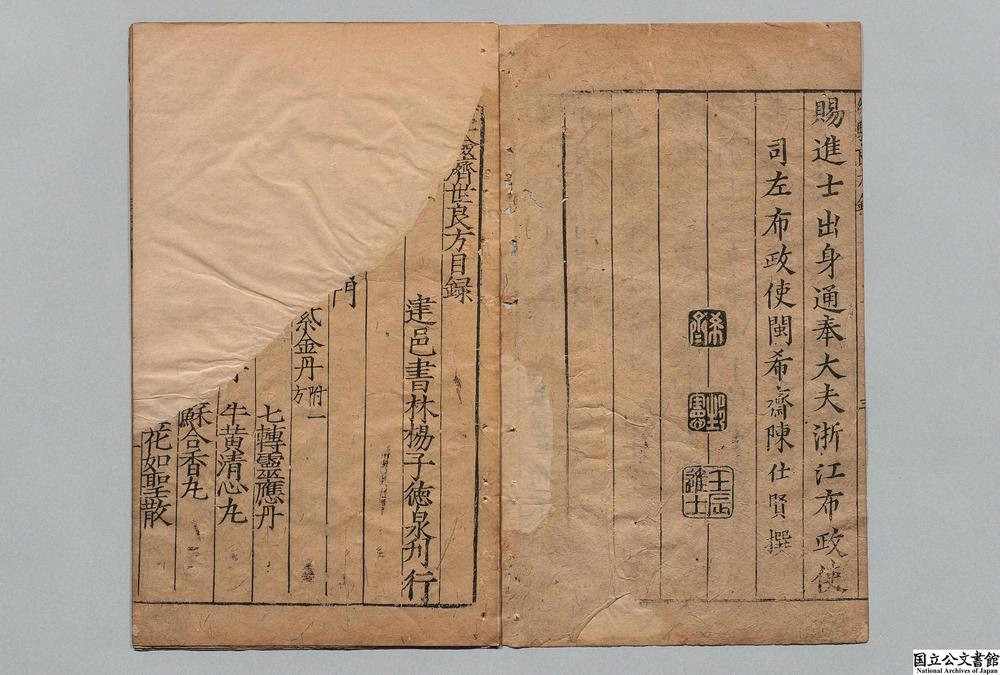 賜進士出身通奉大夫浙江布政使
司左布政使閩希齋陳仕賢撰
壬辰
進士
濟世良方目録
建邑書林楊子德泉刋行
門
紫金丹附一方
七轉靈應丹
牛黃清心丸
蘇合香丸
花如聖散
国立公文書館
National Archives of Japan